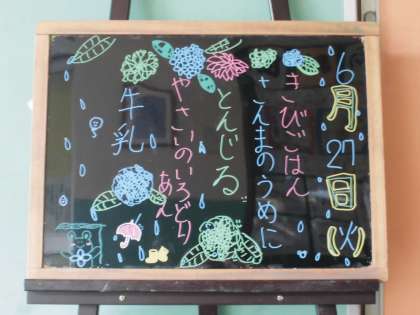 6月27日(火)
きびごはん
さえまのうめに
とんじる
やさいのいろどり
あん
牛乳